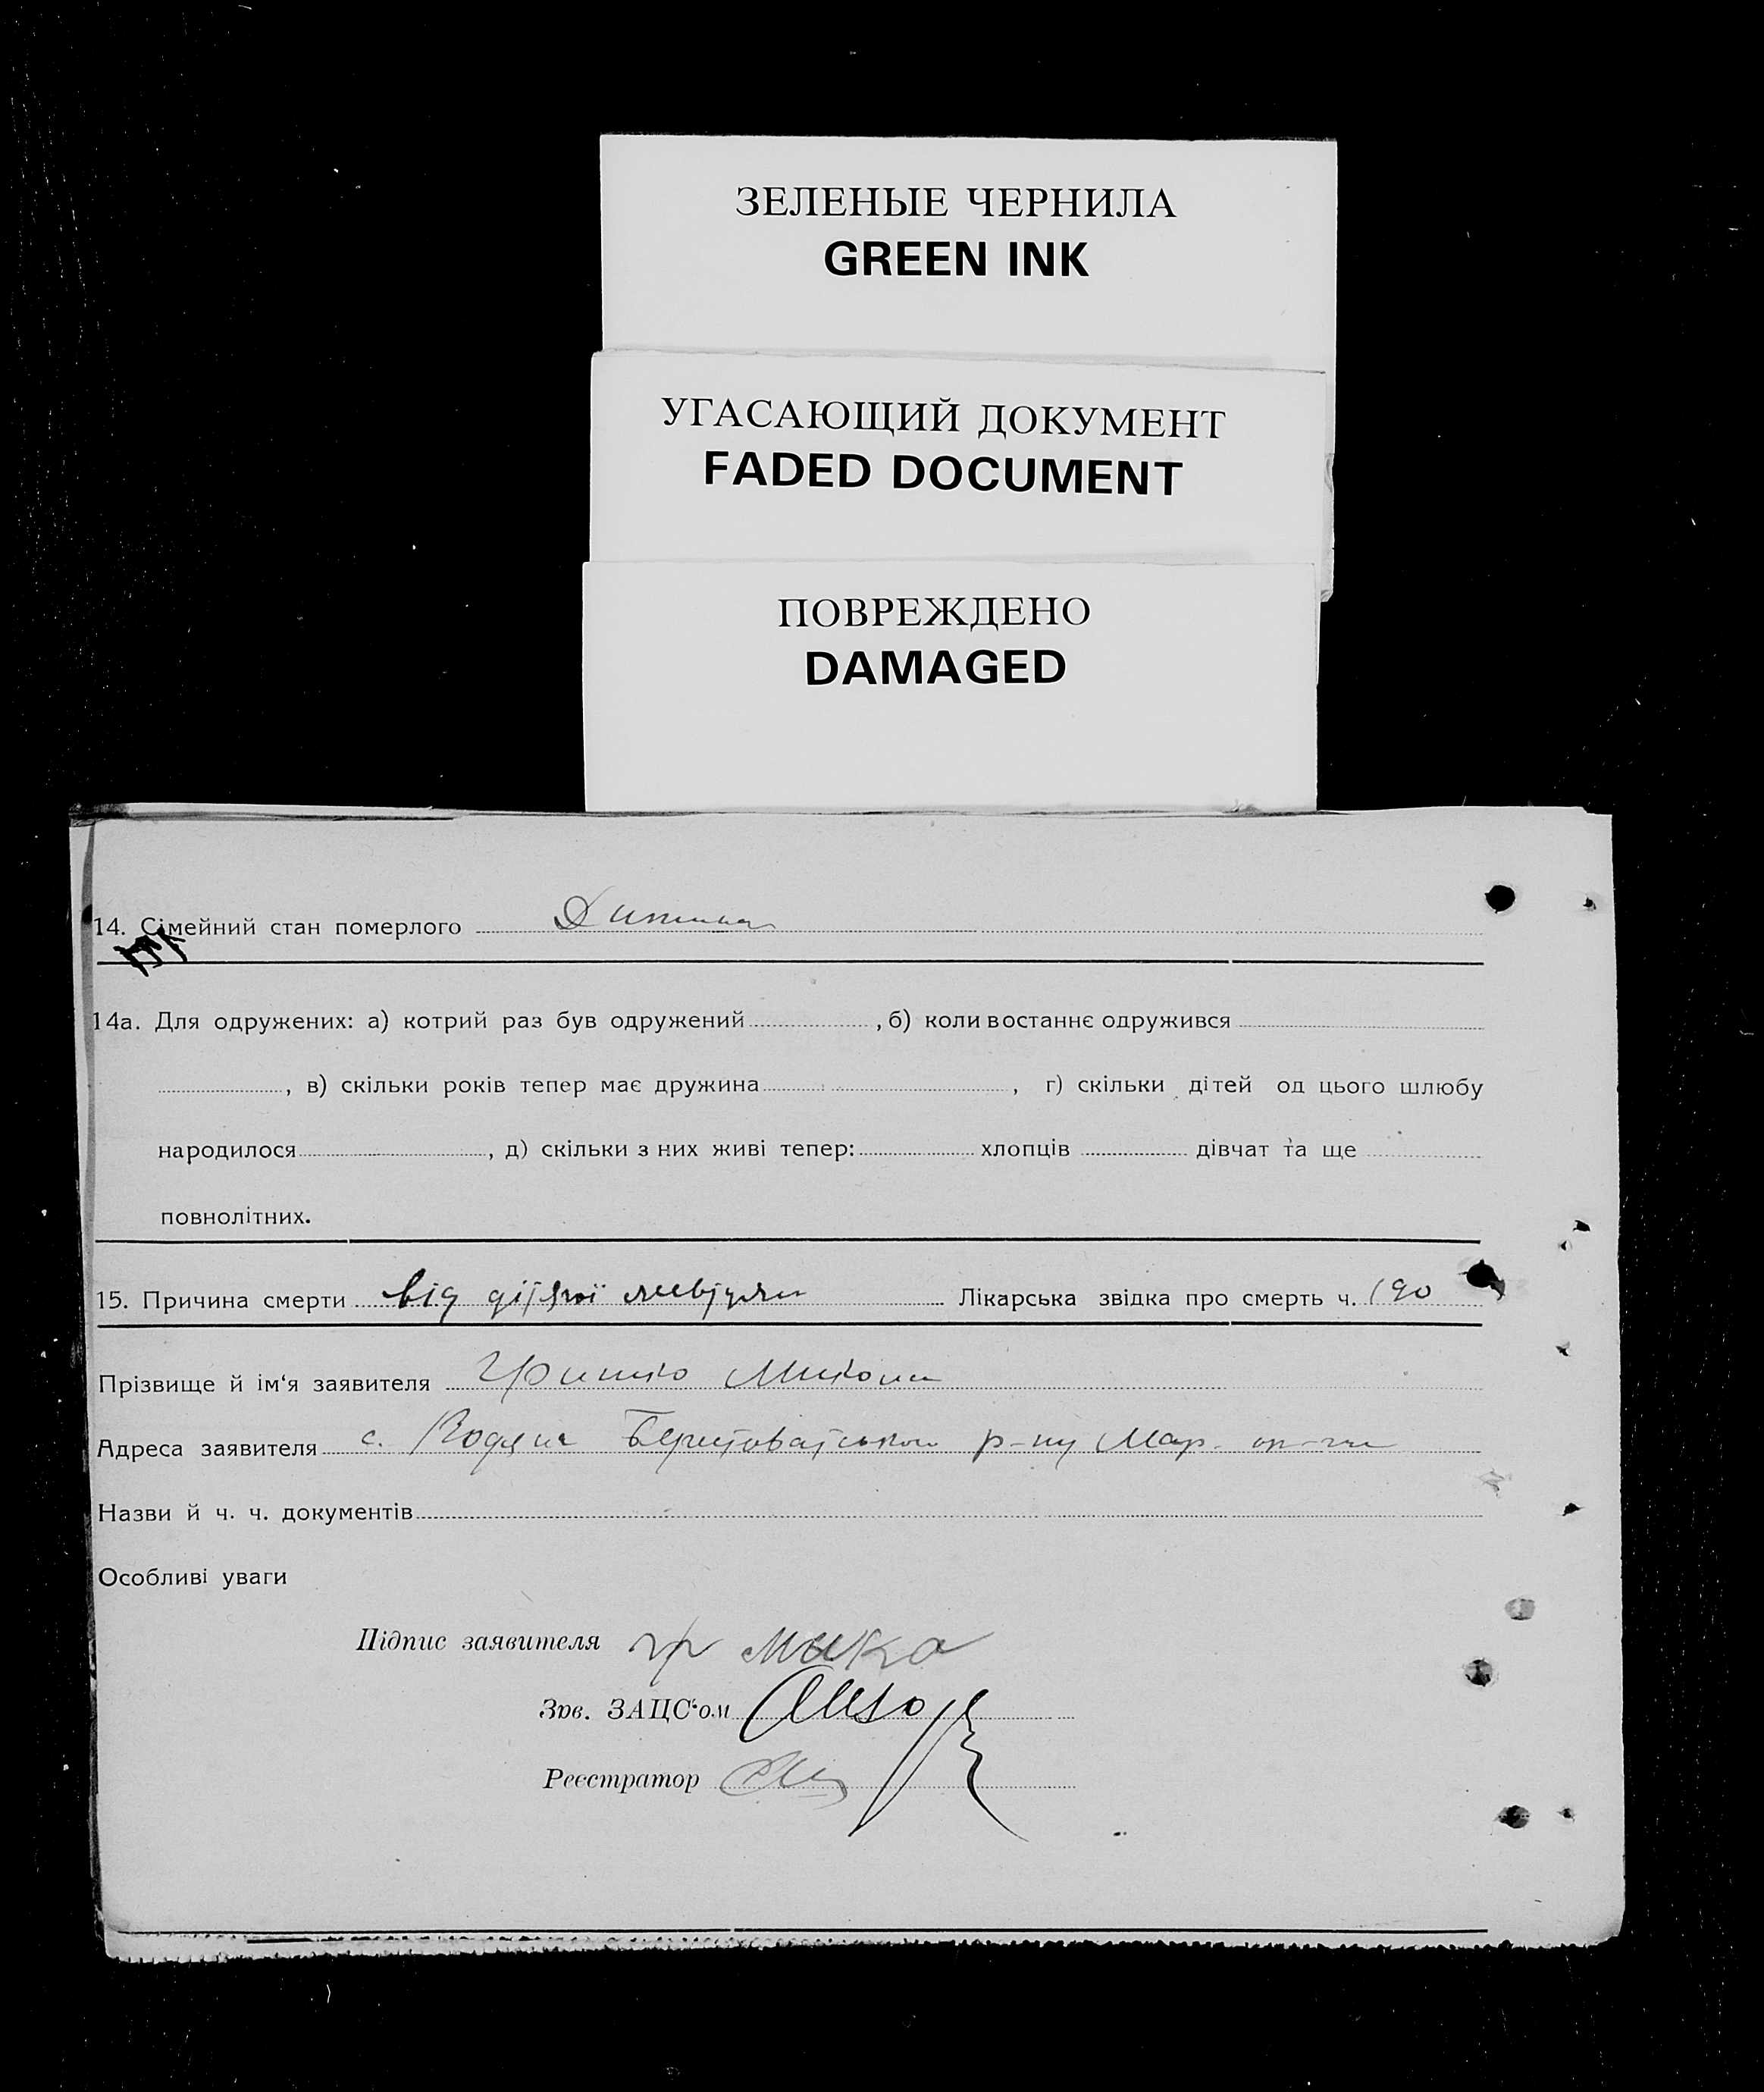 ЗЕЛЕНЫЕ ЧЕРНИЛА
GREEN INK
УГАСАЮЩИЙ ДОКУМЕНТ
FADED DOCUMENT
ПОВРЕЖДЕНО
DAMAGED
14. Сімейний стан померлого Дитина
14а. Для одружених: а) котрий раз був одружений , б) коли востаннє одружився
, в) скільки років тепер має дружина , г) скільки дітей од цього шлюбу
народилося , д) скільки з них живі тепер: хлопців дівчат та ще
повнолітних.
15. Причина смерти від Лікарська звідка про смерть ч. 190
Прізвище й ім‘я заявителя Гришко Микола
Адреса заявителя с. Водяна р-ну Мар.
Назви й ч. ч. документів
Особливі уваги
Підпис заявителя гр мико
Зав. ЗАЦС‘ом
Реєстратор